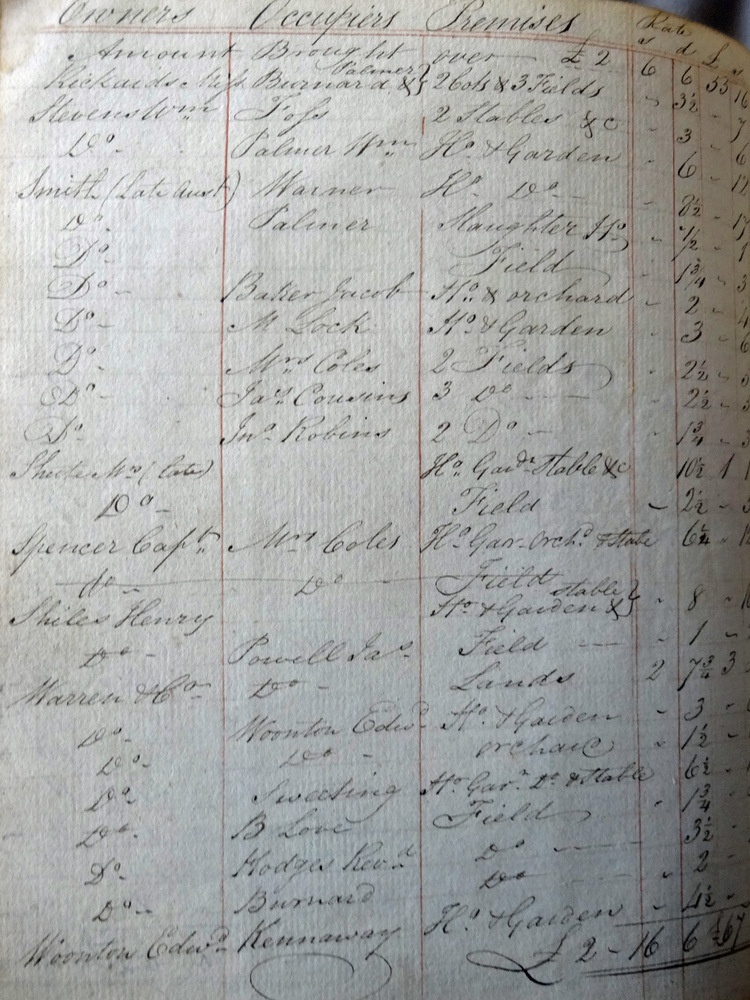 Owners Occupiers Premises Rate
s d £ s
Amount Brought over £ 2 6 6 53 16
Rickards Miss Burnard & Palmer} 2 Cots & 3 Fields - 3½ -
Stevens Wm Foss 2 Stables &c - 3 -
Do - Palmer Wm Ho. & Garden - 6 -
Smith (Late Aust) Warner Ho. Do - - 8½ -
Do Palmer Slaughter Ho. - ½ -
Do Field - 1¾ -
Do - Baker Jacob Ho. & orchard - 2 -
Do - M Lock Ho. & Garden - 3 -
Do Mrs Coles 2 Fields - 2½ -
Do - Jas. Cousins 3 Do - 2½ -
Do Jno. Robins 2 Do - - 1¾ -
(Late) Ho. Gardn. Stable &c 10½ 1
Do - Field - 2½ -
Spencer Captn. Mrs Coles Ho. Gar. Orchd. & Stable 6¼ -
do - Do Field
Shiles Henry Ho. & Garden & stable} - 8 -
Do - Powell Jas. Field - 1 -
Warren & Co. Do - Lands 2 7¾ 3
Do - Woonton Edwd. Ho. & Garden - 3 -
Do - Do - orchard - 1½ -
Do - Sweeting Ho. Garn. Do. & Stable 6½ -
Do - B Love Field - 1¾ -
Do - Hodges Revd. Do - 3½ -
Do - Burnard Do - 2 -
Woonton Edwd. Kennaway Ho. & Garden - 4½ -
£ 2 - 16 6